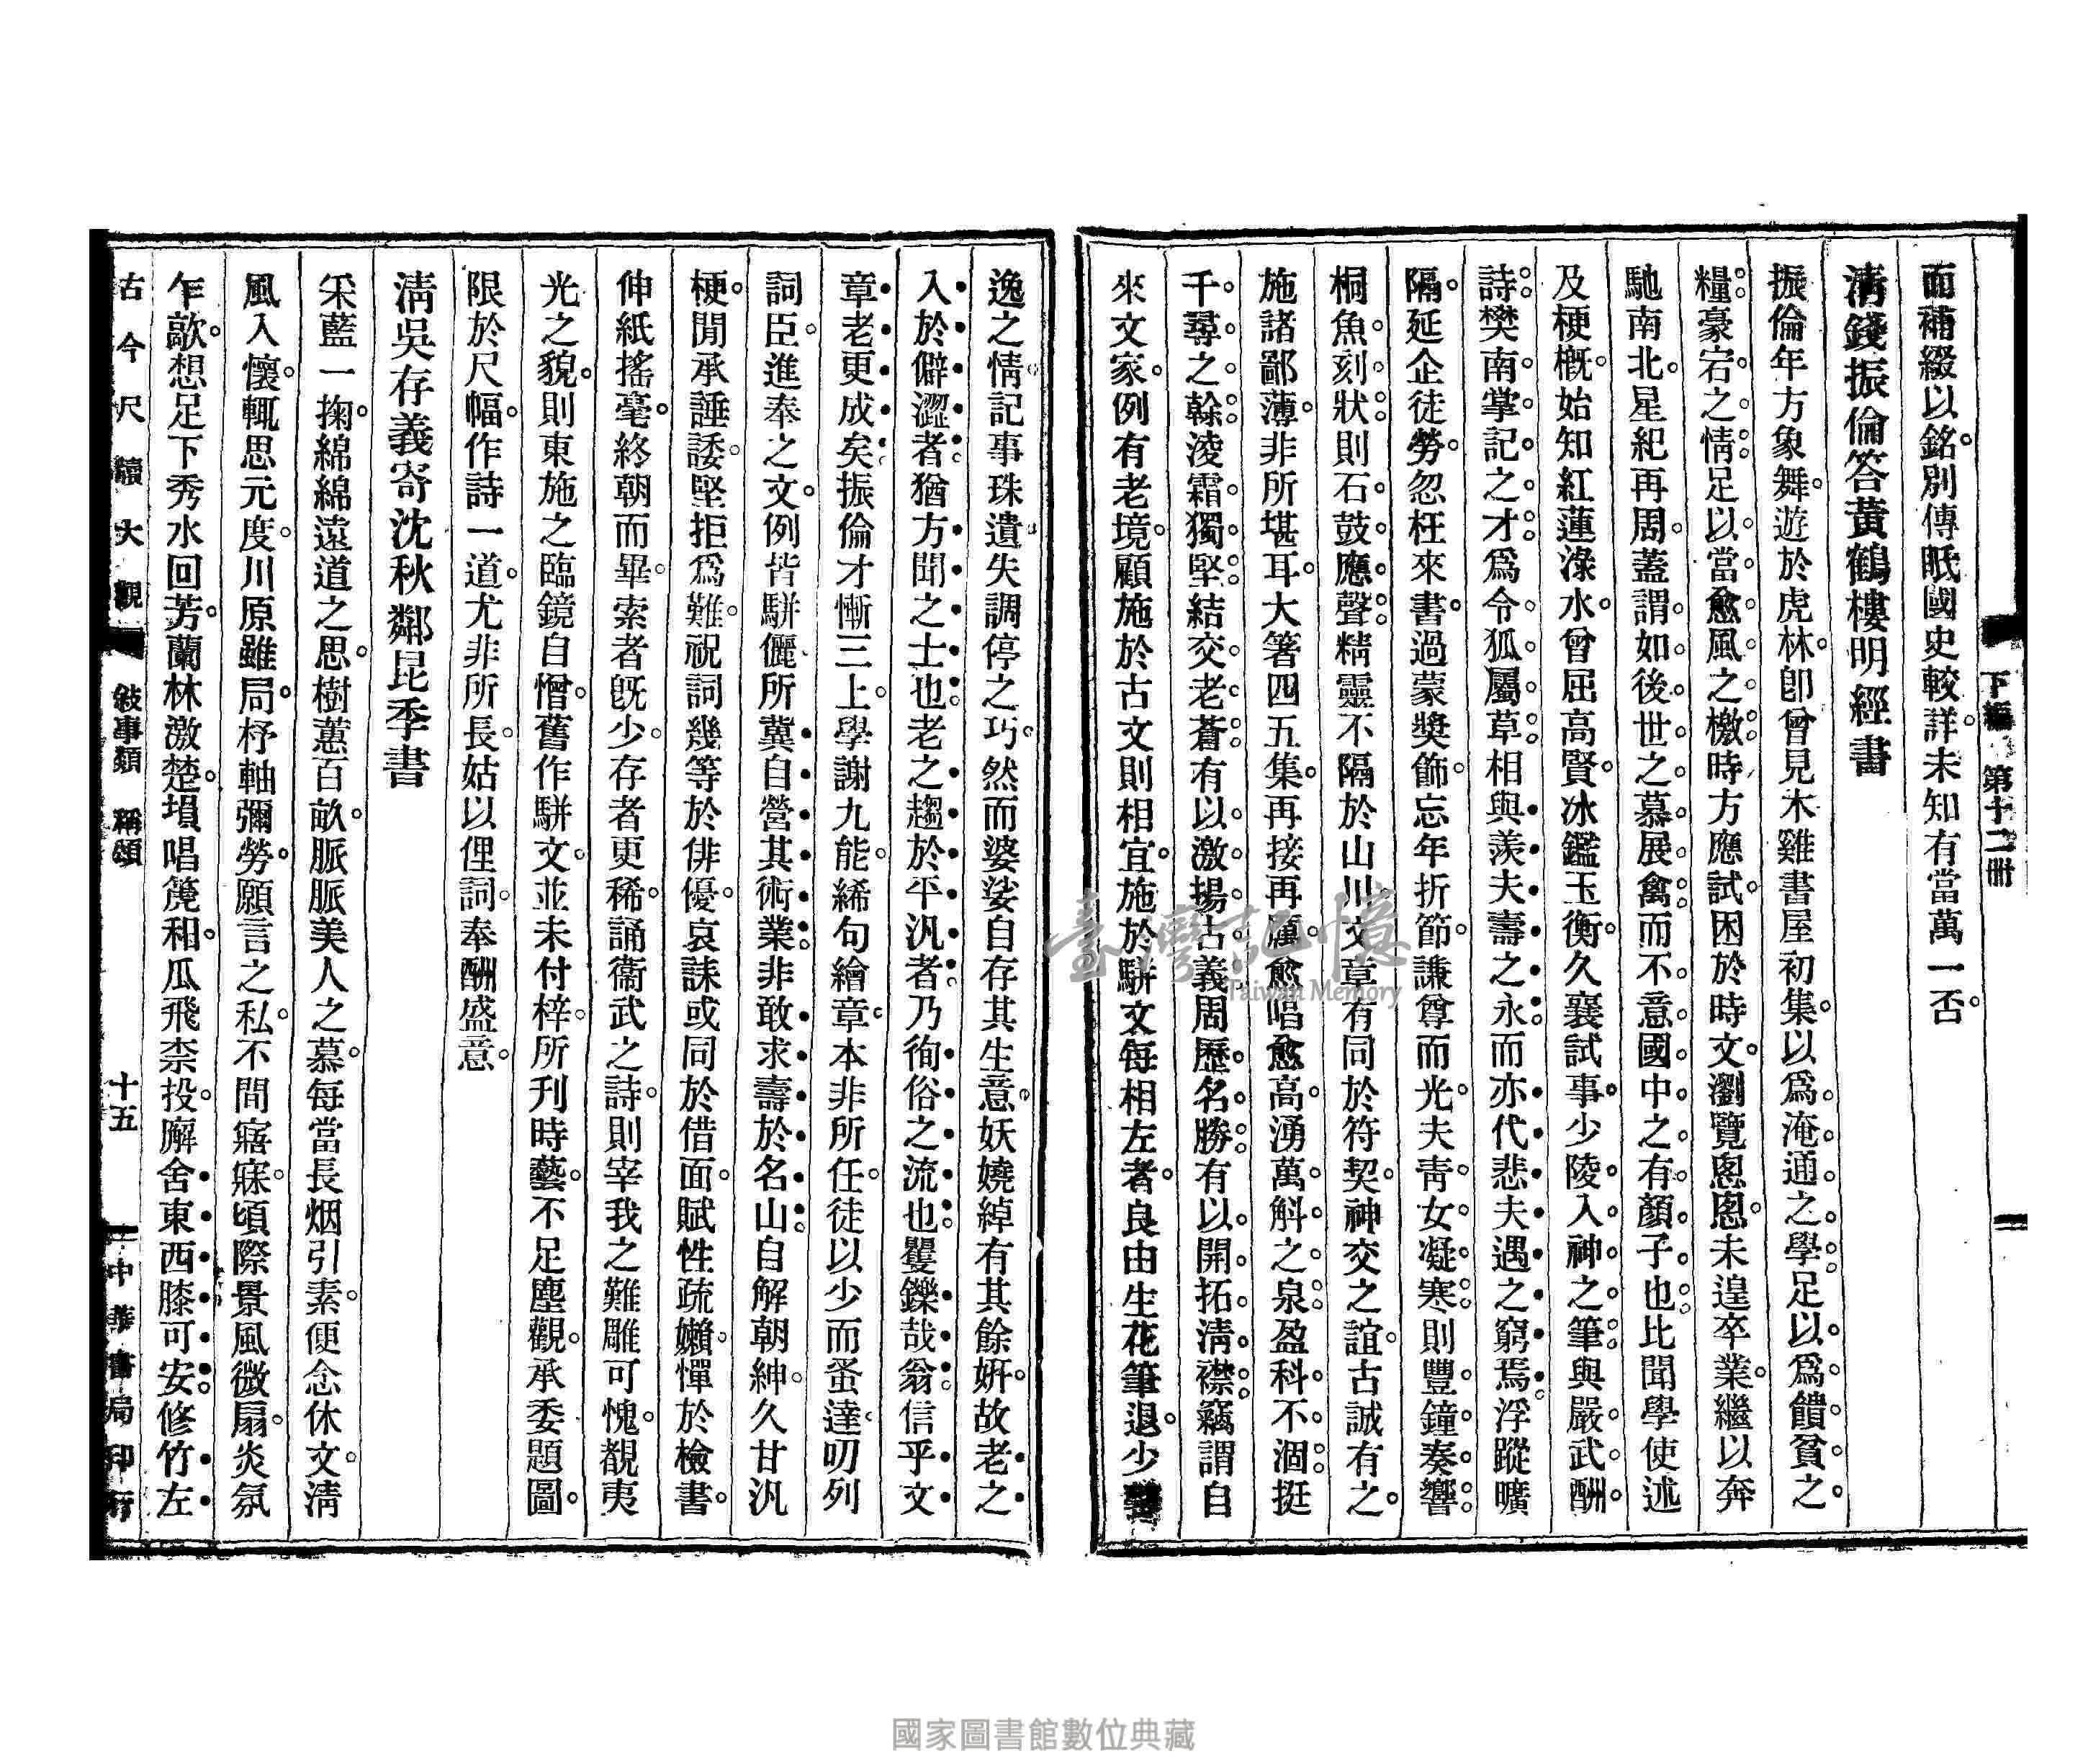 下編　第十二冊
面補綴以銘。別傳眂國史較詳。未知有當萬一否。
清錢振倫答黃鶴樓明經書
振倫年方象舞。遊於虎林。卽曾見木雞書屋初集。以爲淹通之學。足以爲饋貧之
糧。豪宕之情。足以當愈風之檄。時方應試。困於時文。瀏覽悤悤。未遑卒業。繼以奔
馳南北。星紀再周。蓋謂如後世之慕展禽。而不意國中之有顏子也。比聞學使述
及梗槪。始知紅蓮淥水。曾屈高賢。冰鑑玉衡。久襄試事。少陵入神之筆。與嚴武酬
詩。樊南掌記之才。爲令狐屬草。相與羨夫壽之永。而亦代悲夫遇之窮焉。浮蹤曠
隔。延企徒勞。忽枉來書。過蒙獎飾。忘年折節。謙尊而光。夫靑女凝寒。則豐鐘奏響。
桐魚刻狀。則石鼓應聲。精靈不隔於山川。文章有同於符契。神交之誼。古誠有之。
施諸鄙薄。非所堪耳。大箸四五集。再接再厲。愈唱愈高。湧萬斛之泉。盈科不涸。挺
千尋之榦。淩霜獨堅。結交老蒼。有以激揚古義。周歷名勝。有以開拓淸襟。竊謂自
來文家。例有老境。顧施於古文則相宜。施於駢文每相左者。良由生花筆退。少
逸之情。記事珠遺。失調停之巧。然而婆娑自存其生意。妖嬈綽有其餘姸。故老之
入於僻澀者。猶方聞之士也。老之趨於平汎者。乃徇俗之流也。矍鑠哉翁。信乎文
章老更成矣。振倫才慚三上。學謝九能。絺句繪章。本非所任。徒以少而蚤達。叨列
詞臣。進奉之文。例皆駢儷。所冀自營其術業。非敢求壽於名山。自解朝紳。久甘汎
梗。閒承諈諉。堅拒爲難。祝詞幾等於俳優。哀誄或同於借面。賦性疏嬾。憚於檢書。
伸紙搖毫。終朝而畢。索者旣少。存者更稀。誦衞武之詩。則宰我之難雕可愧。覩夷
光之貌。則東施之臨鏡自憎。舊作駢文。並未付梓。所刋時藝。不足塵觀。承委題圖。
限於尺幅。作詩一道。尤非所長。姑以俚詞。奉酬盛意。
淸吳存義寄沈秋鄰昆季書
采藍一掬。綿綿遠道之思。樹蕙百畝。脈脈美人之慕。每當長烟引素。便念休文。淸
風入懷。輒思元度。川原雖局。杼軸彌勞。願言之私。不間寤寐。頃際景風微扇。炎氛
乍歊。想足下秀水回芳。蘭林激楚。塤唱箎和。瓜飛柰投。廨舍東西。膝可安。修竹左
古今尺牘大觀
敍事類　稱頌
十五
中華書局印行
臺灣記憶
Taiwan Memory
國家圖書館數位典藏